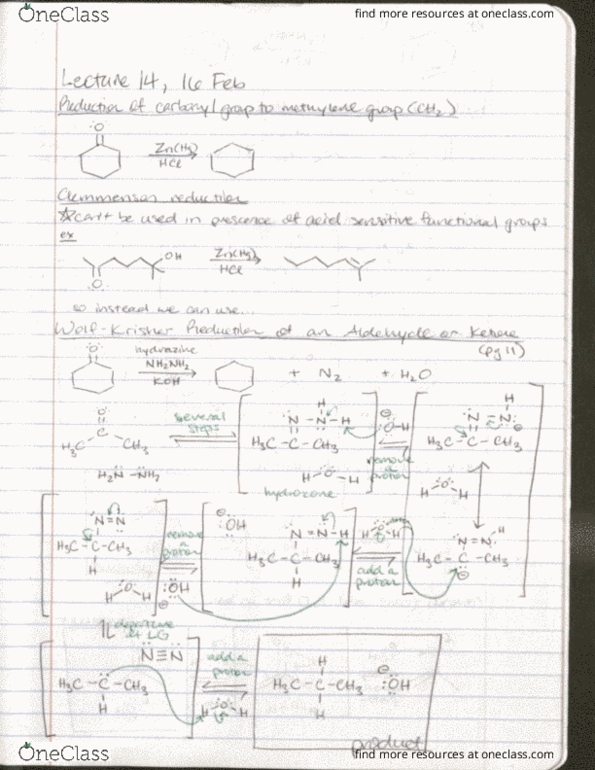 OneClass
find more resources at oneclass.com
Lecture 14, 16 Feb
Reduction of carbonyl group to methylene group (CH2)
:O:
Zn(Hg)
HCl
Clemmenson reduction
*can't be used in prescence of acid sensitive functional groups
ex
OH
Zn(Hg)
HCl
:O:
so instead we can use...
Wolf-Krisher Reduction of an Aldehyde or Ketone
(pg 11)
:O:
hydrazine
NH2NH2
KOH
+ N2 + H2O
:O:
H3C C CH3
H2N-NH2
several steps
N-N-H
H
H3C-C-CH3
H-O-H
hydrozone
:O-H
remove a proton
H
N-N
H3C-C-CH3
H-O-H
N=N
H3C-C-CH3
H
H-O-H
remove a proton
:OH
:OH
N=N-H
H3C-C-CH3
H
H-O-H
add a proton
N=N-H
H3C-C-CH3
departure of LG
N≡N
H3C-C-CH3
H
add a proton
H-O-H
H
H3C-C-CH3 :OH
H
product
OneClass
find more resources at oneclass.com